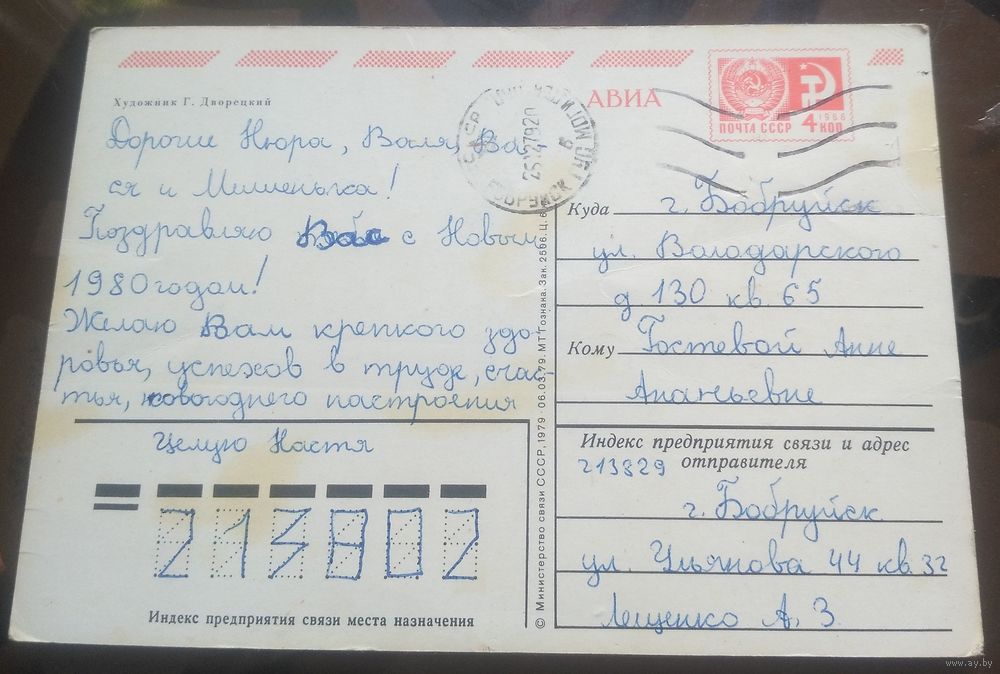 АВИА
ПОЧТА СССР
1966
4 КОП
Художник Г. Дворецкий
Дорогие Нюра, Валя, Ва-
ся и Мишенька!
Поздравляю Вас с Новым
1980 годом!
Желаю Вам крепкого здо-
ровья, успехов в труде, счас-
тья, новогоднего настроения
Целую Настя
213802
Индекс предприятия связи места назначения
© Министерство связи СССР, 1979 · 06.03.79. МТ Гознака. Зак. 2596. Ц. 6
Куда г. Бобруйск
ул. Володарского
д 130 кв. 65
Кому Гостевой Анне
Ананьевне
Индекс предприятия связи и адрес
отправителя
213829
г. Бобруйск
ул. Ульянова 44 кв. 32
Лещенко А. З
www.ay.by